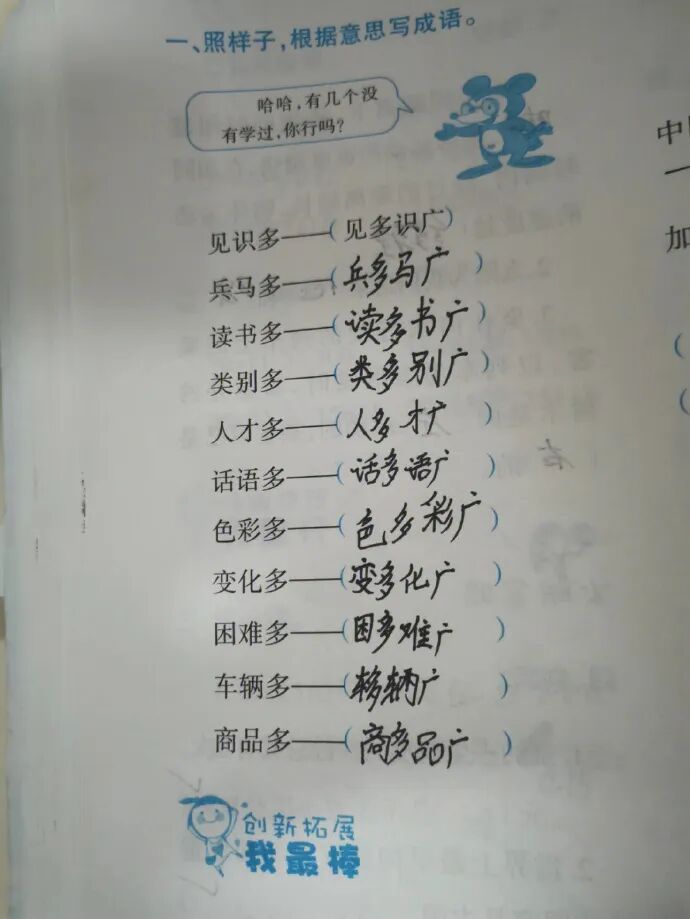 一、照样子，根据意思写成语。
哈哈，有几个没
有学过，你行吗？
见识多——（见多识广）
兵马多——（兵多马广）
读书多——（读多书广）
类别多——（类多别广）
人才多——（人多才广）
话语多——（话多语广）
色彩多——（色多彩广）
变化多——（变多化广）
困难多——（困多难广）
车辆多——（车多辆广）
商品多——（商多品广）
创新拓展
我最棒
中
一
加
（
（